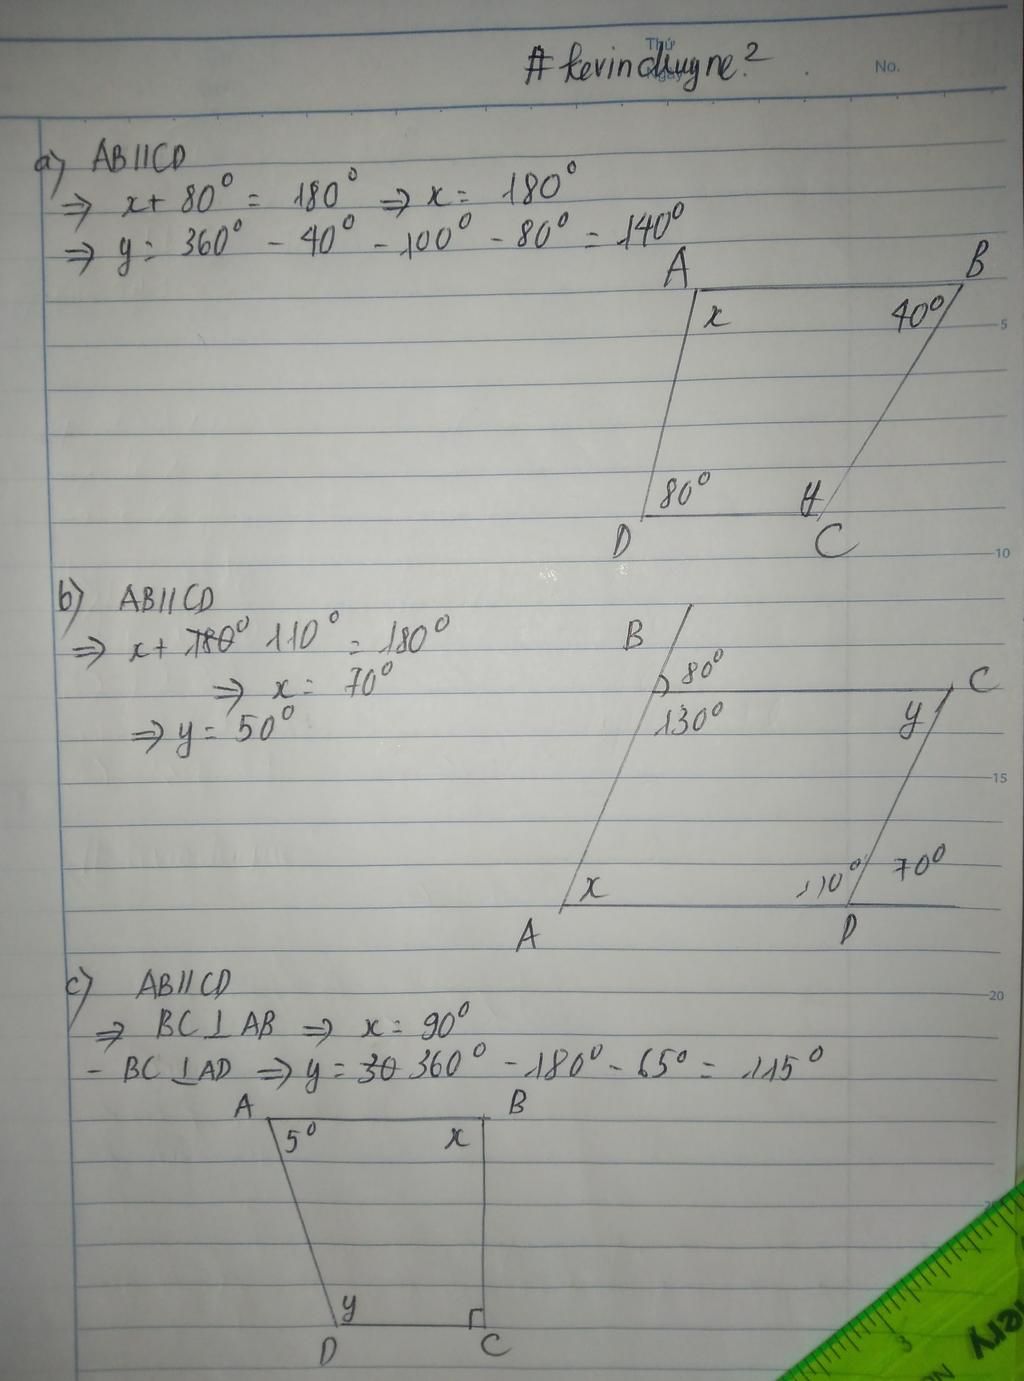 #kevinchuyne.2
Thứ
Ngày
No.
a) AB//CD
⇒ x + 80° = 180° ⇒ x = 180°
⇒ y = 360° - 40° - 100° - 80° = 140°
A
B
x
40°
5
80°
y
D
C
10
b) AB//CD
⇒ x + 780° 110° = 180°
⇒ x = 70°
⇒ y = 50°
B
80°
C
130°
y
15
x
110°
70°
A
D
c) AB//CD
20
⇒ BC⊥AB ⇒ x = 90°
- BC⊥AD ⇒ y = 30 360° - 180° - 65° = 115°
A
B
5°
x
y
D
C
3